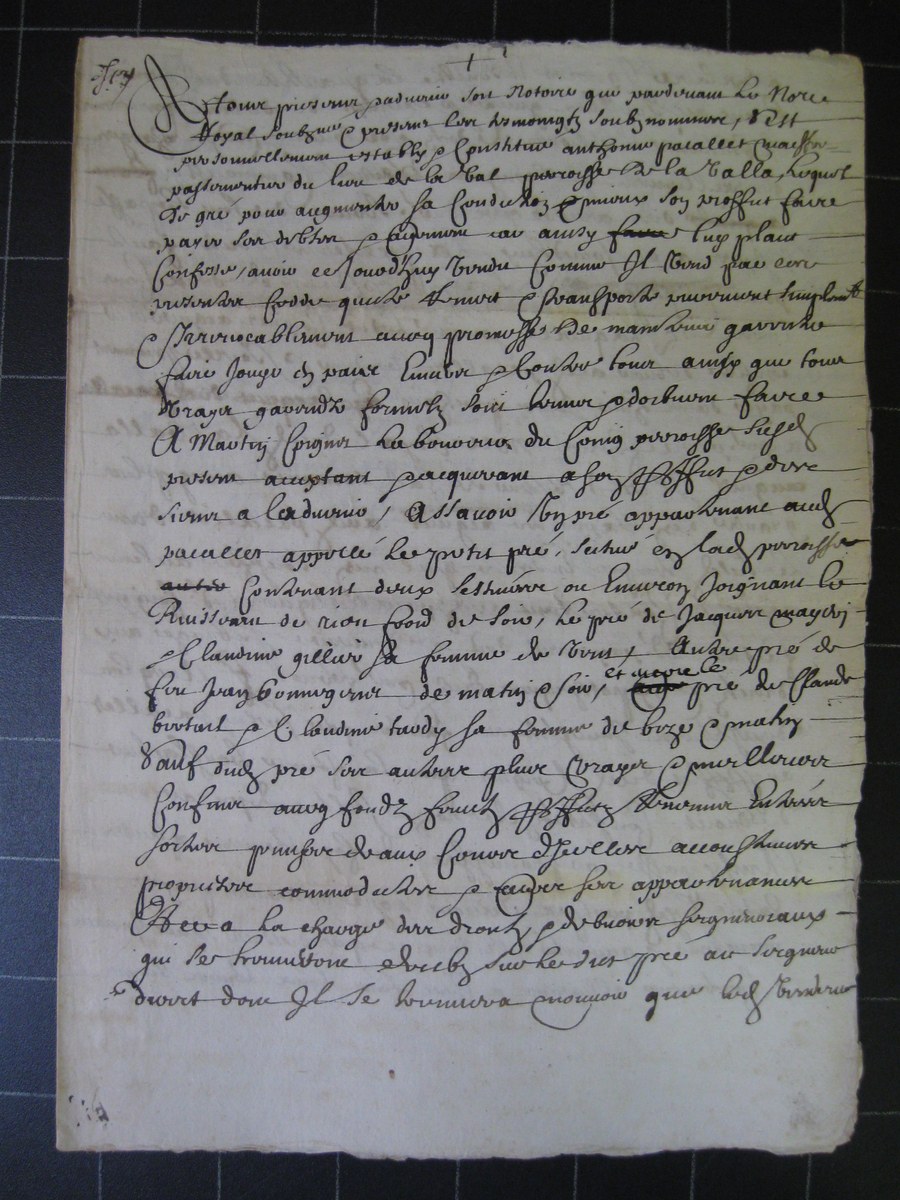 A tous presens & advenir soit Notoire que pardevant le No.re
Royal soubzne & presens les tesmoingtz soubz nommes, s'est
personnellement estably & Constitue anthoine pacallet maistre
passementier du lieu de la Val parroisse de la Valla, lequel
de gré pour augmenter sa Condition & mieux son proffict faire
payer ses debtes & autrement car ainsy luy plaict
Confesse, avoir ce Jourdhuy Vendu Comme Il Vend par ces
presentes Cedde quicte Remect & transporte purement simplemt
& Irrevocablement avecq promesse de maintenir garentir
faire Jouyr en paix Envers & Contre tous ainsy que tous
Vrayz garendz formelz sont tenus & doibvent faire
A Martin Coignet laboureur du Coing parroisse susd
present acceptant & acquerant a son proffict & des
siens a ladvenir, Assavoir Ung pré appartenant aud
pacallet appellé le petit pré, scitué en lad parroisse
Contenant deux sestivees ou Environ Joignant le
Ruisseau de rieu froid de soir, le pré de Jacques
& Claudine gillier sa femme de Vent, Autre pré de
feu Jean bonnegens de matin & soir, et encore le pré de Claude
bertail & Claudine tardy sa femme de bize & matin
Sauf dud pré ses autres plus Vrayz & meilleures
Confins avecq fondz fruictz proffictz Revenus Entrées
sorties prinses deaux Cours dicelles accoustumes
proprietes commodites & autres ses appartenances
Et ce a la charge des droictz & debvoirs seigneuriaux
qui se trouveront deubz sur ledict pré au seigneur
direct dont Il se trouvera mouvoir que led Vendeur